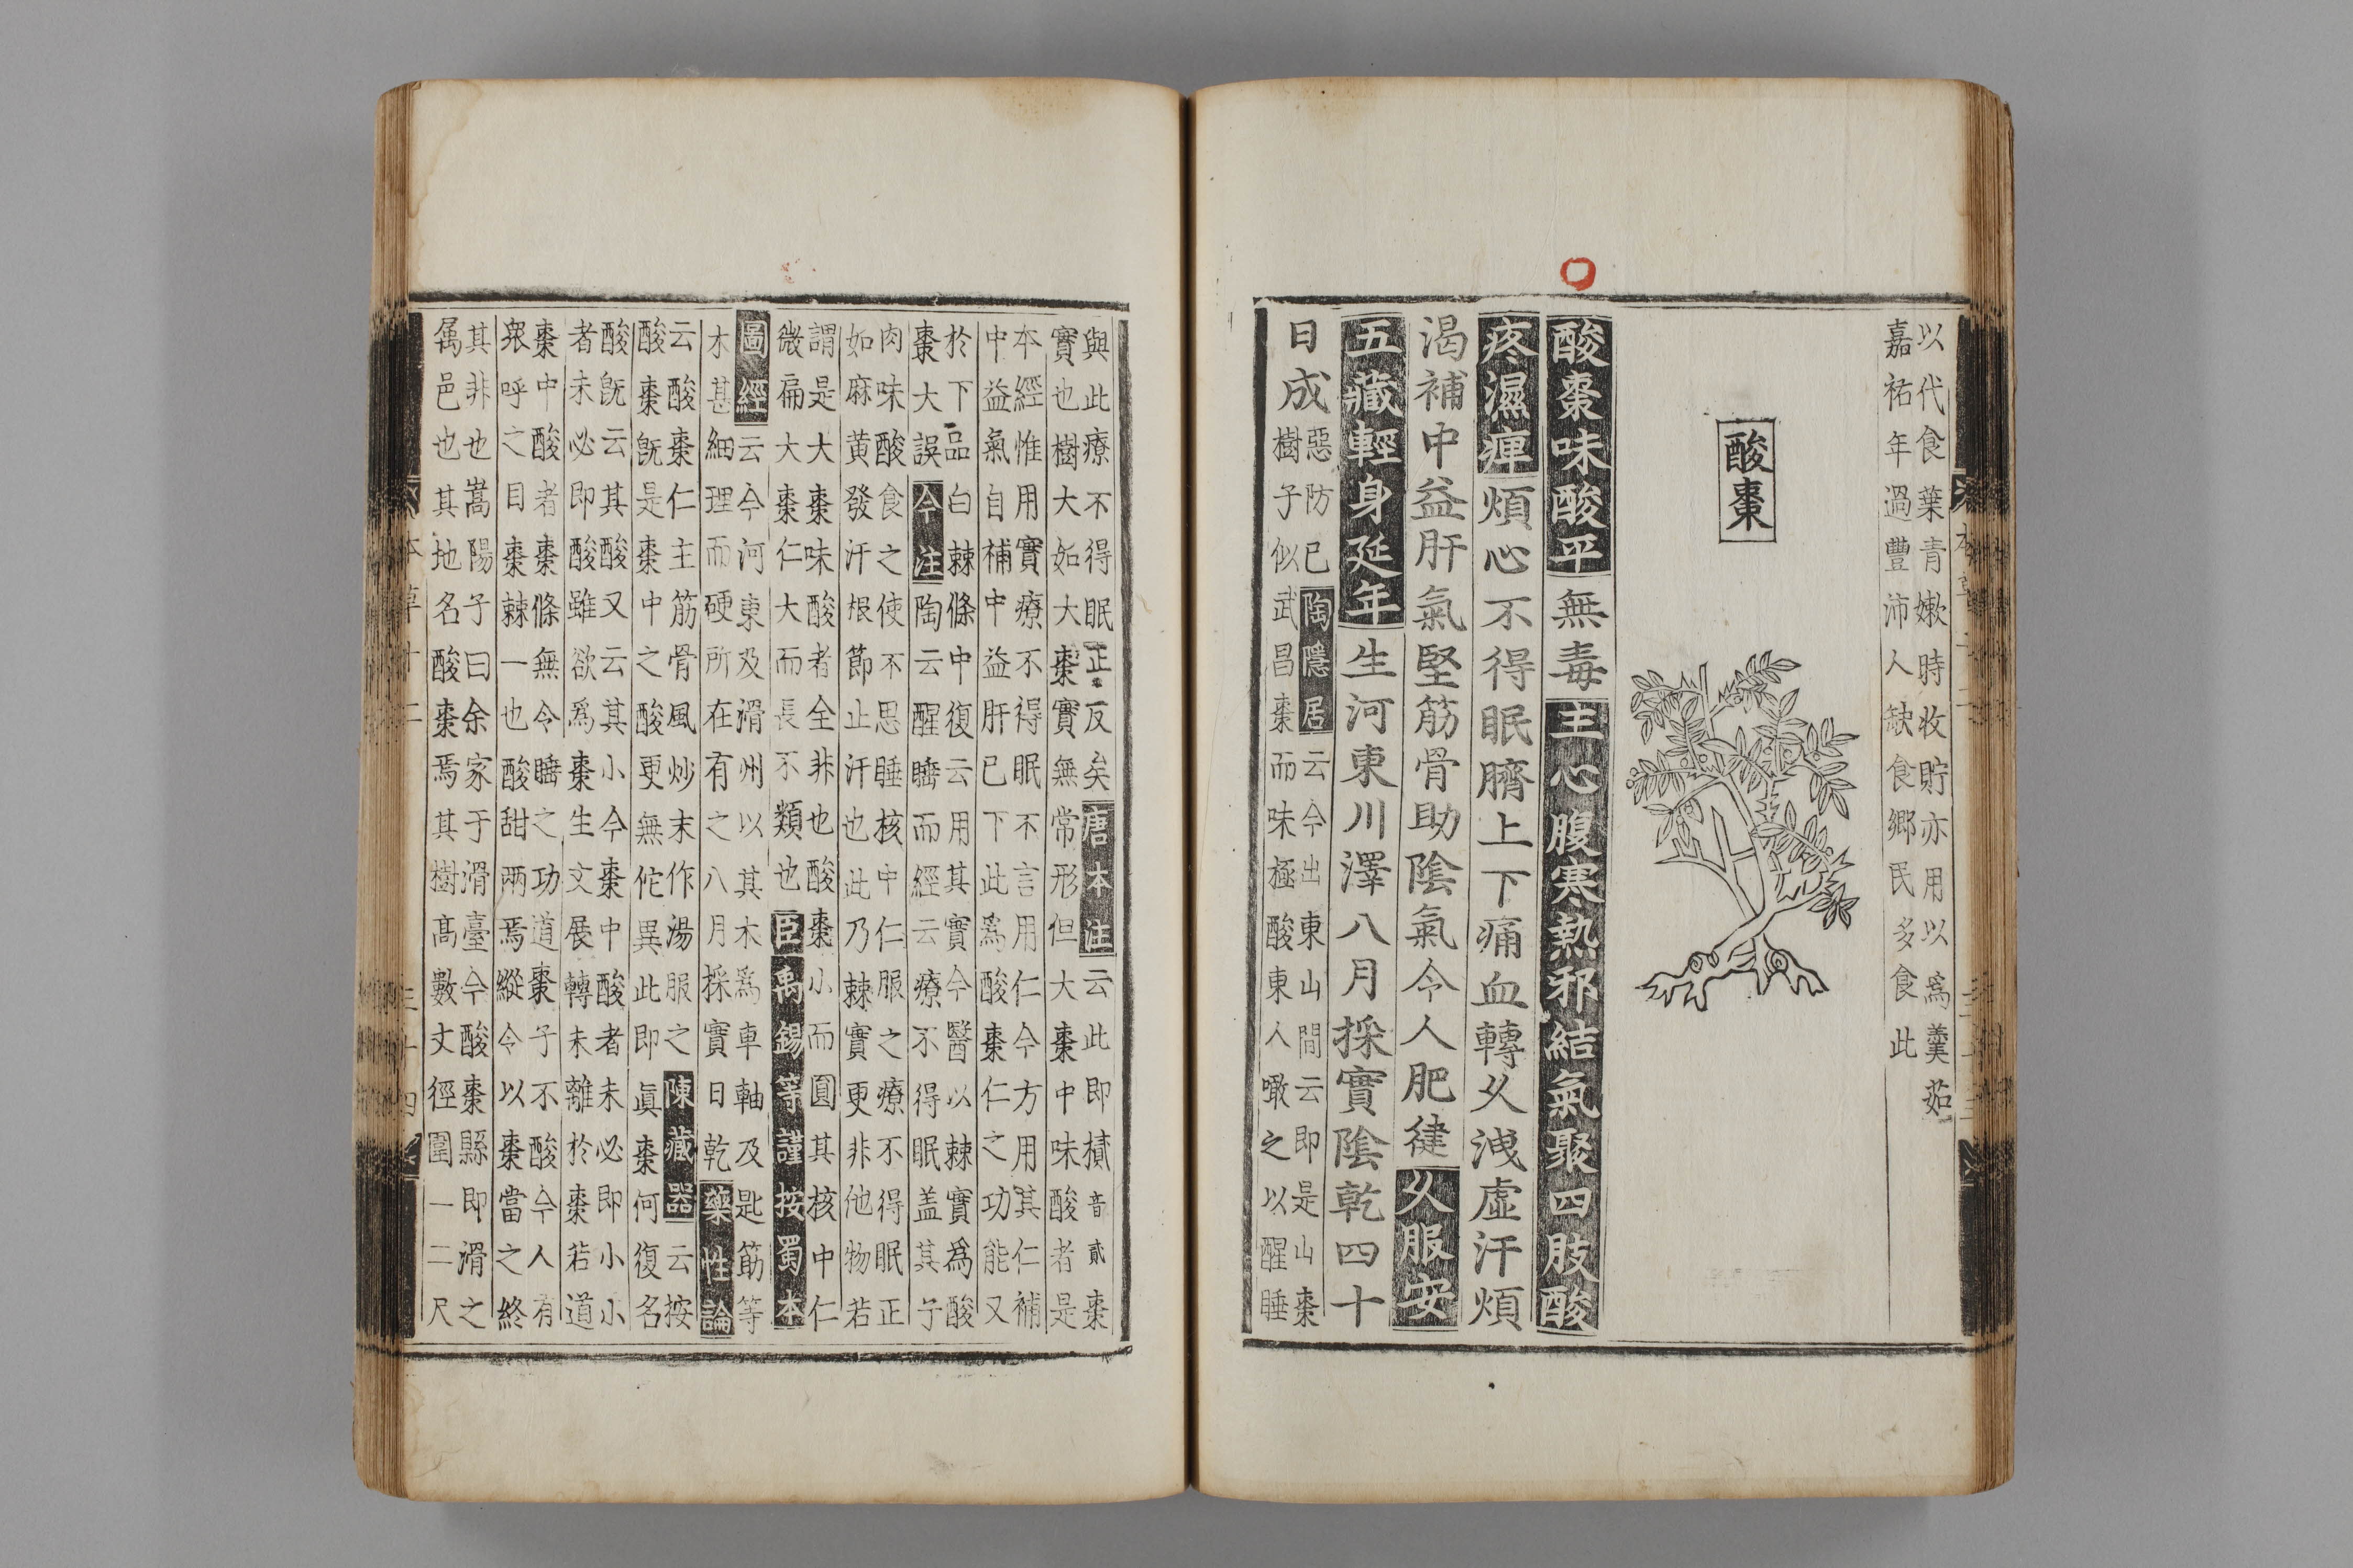 以代食葉青嫰時收貯亦用以爲羹茹
嘉祐年過豐沛人缺食鄉民多食此
酸棗
酸棗味酸平無毒主心腹寒熱邪結氣聚四肢酸
疼濕痺煩心不得眠臍上下痛血轉乆洩虛汗煩
渴補中益肝氣堅筋骨助陰氣令人肥健乆服安
五藏輕身延年生河東川澤八月採實陰乾四十
日成
惡防已陶隱居云今出東山間云即是山棗
樹子似武昌棗而味極酸東人噉之以醒睡
與此療不得眠正反矣唐本注云此即樲音貳棗
實也樹大如大棗實無常形但大棗中味酸者是
本經惟用實療不得眠不言用仁今方用其仁補
中益氣自補中益肝已下此爲酸棗仁之功能又
於下品白棘條中復云用其實今醫以棘實爲酸
棗大誤今注陶云醒睡而經云療不得眠盖其子
肉味酸食之使不思睡核中仁服之療不得眠正
如麻黄發汗根節止汗也此乃棘實更非他物若
謂是大棗味酸者全非也酸棗小而圓其核中仁
微扁大棗仁大而長不類也臣禹錫等謹按蜀本
圖經云今河東及滑州以其木爲車軸及匙筯等
木甚細理而硬所在有之八月採實日乾藥性論
云酸棗仁主筋骨風炒末作湯服之陳藏器云按
酸棗旣是棗中之酸更無佗異此即眞棗何復名
酸旣云其酸又云其小今棗中酸者未必即小小
者未必即酸雖欲爲棗生文展轉未離於棗若道
棗中酸者棗條無令睡之功道棗子不酸今人有
衆呼之目棗棘一也酸甜兩焉縱令以棗當之終
其非也嵩陽子曰余家于滑臺今酸棗縣即滑之
属邑也其地名酸棗焉其樹高數丈徑圍一二尺